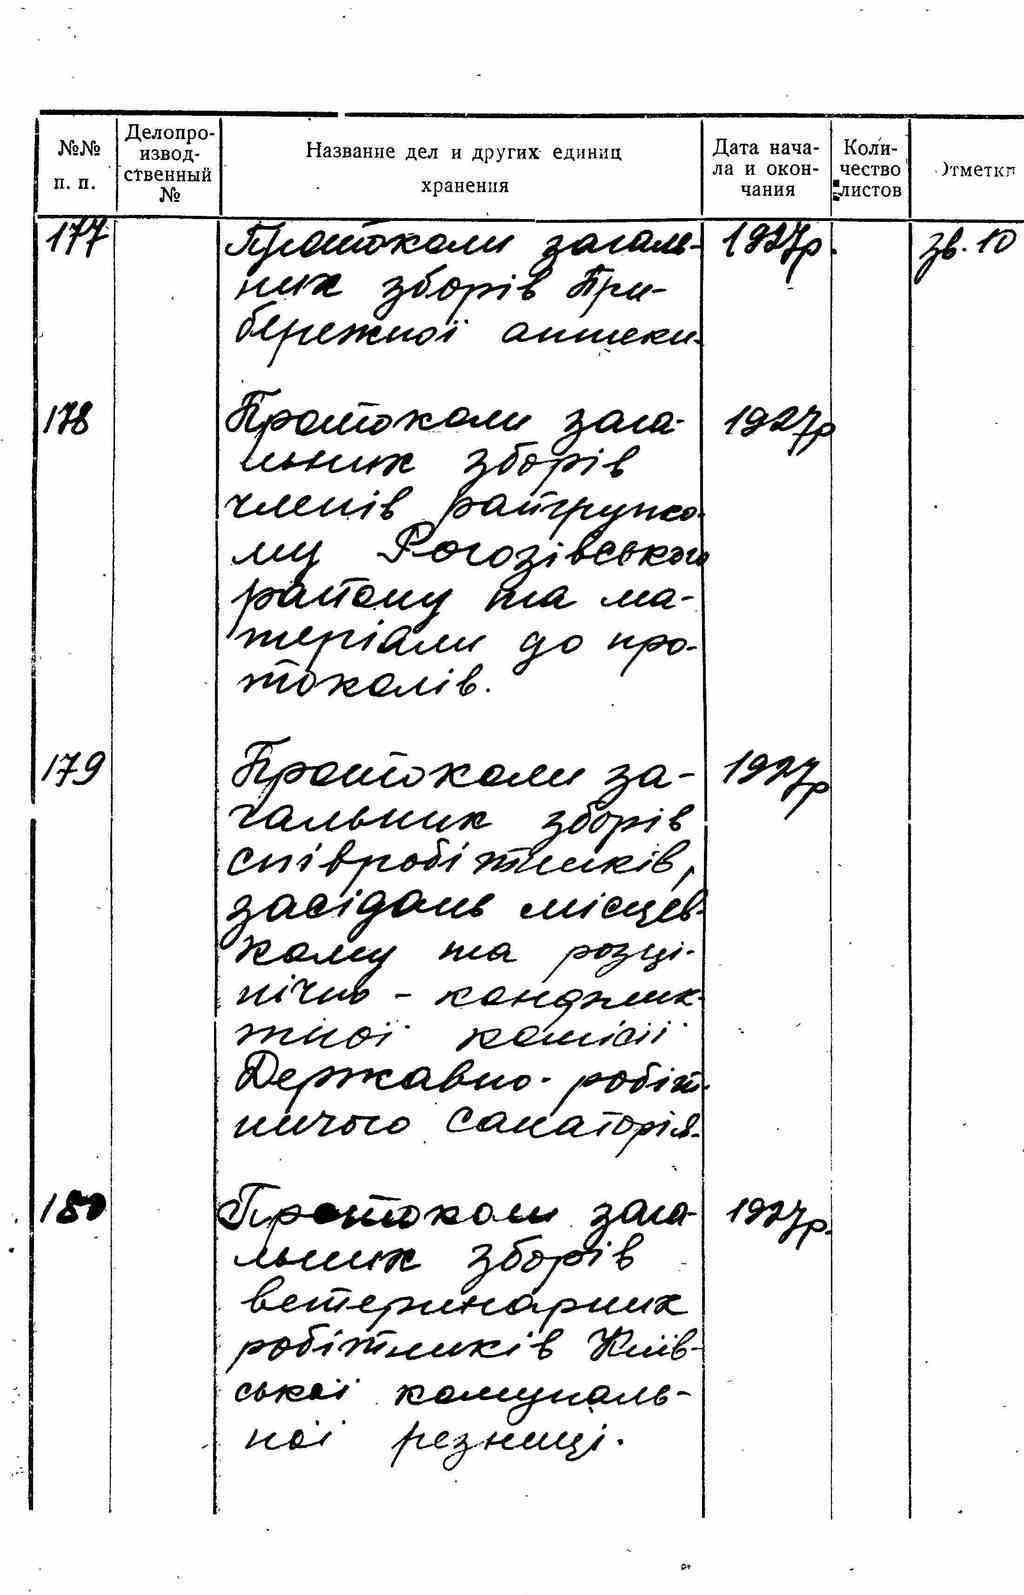 №№
п. п.
Делопро-
извод-
ственный
№
Название дел и других единиц
хранения
Дата нача-
ла и окон-
чания
Коли-
чество
листов
Отметки
177 Протоколи загаль- 1927р. зв. 10
них зборів При-
бережної аптеки.
178 Протоколи зага- 1927р
льних зборів
членів райгрупко-
му Рогозівського
району та ма-
теріали до про-
токолів.
179 Протоколи за- 1927р
гальних зборів
співробітників,
засідань місцев-
кому та розці-
ночно - конфлик-
тної комісії
Державно-робіт-
ничого санаторія.
180 Протоколи зага- 1927р.
льних зборів
ветеринарних
робітників Київ-
ської комуналь-
ної резниці.